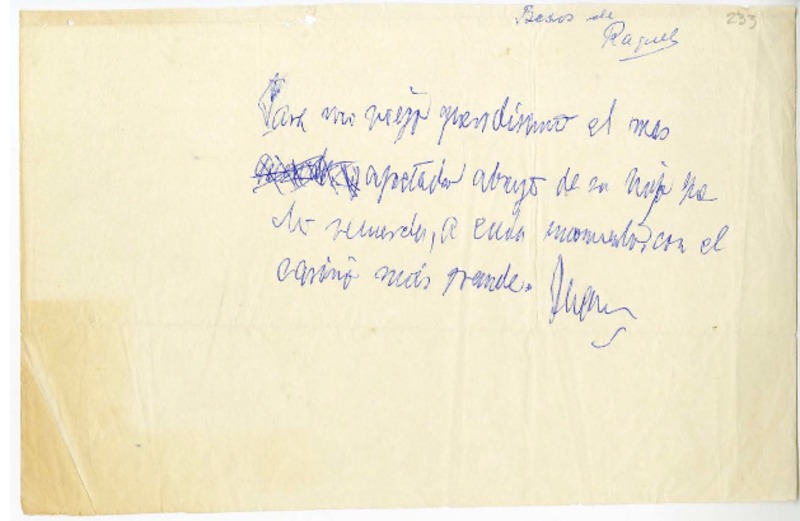 Besos de
Raquel
233
Para mi viejo queridísimo el mas
apretado abrazo de su hijo que
lo recuerda, a cada momento, con el
cariño más grande.